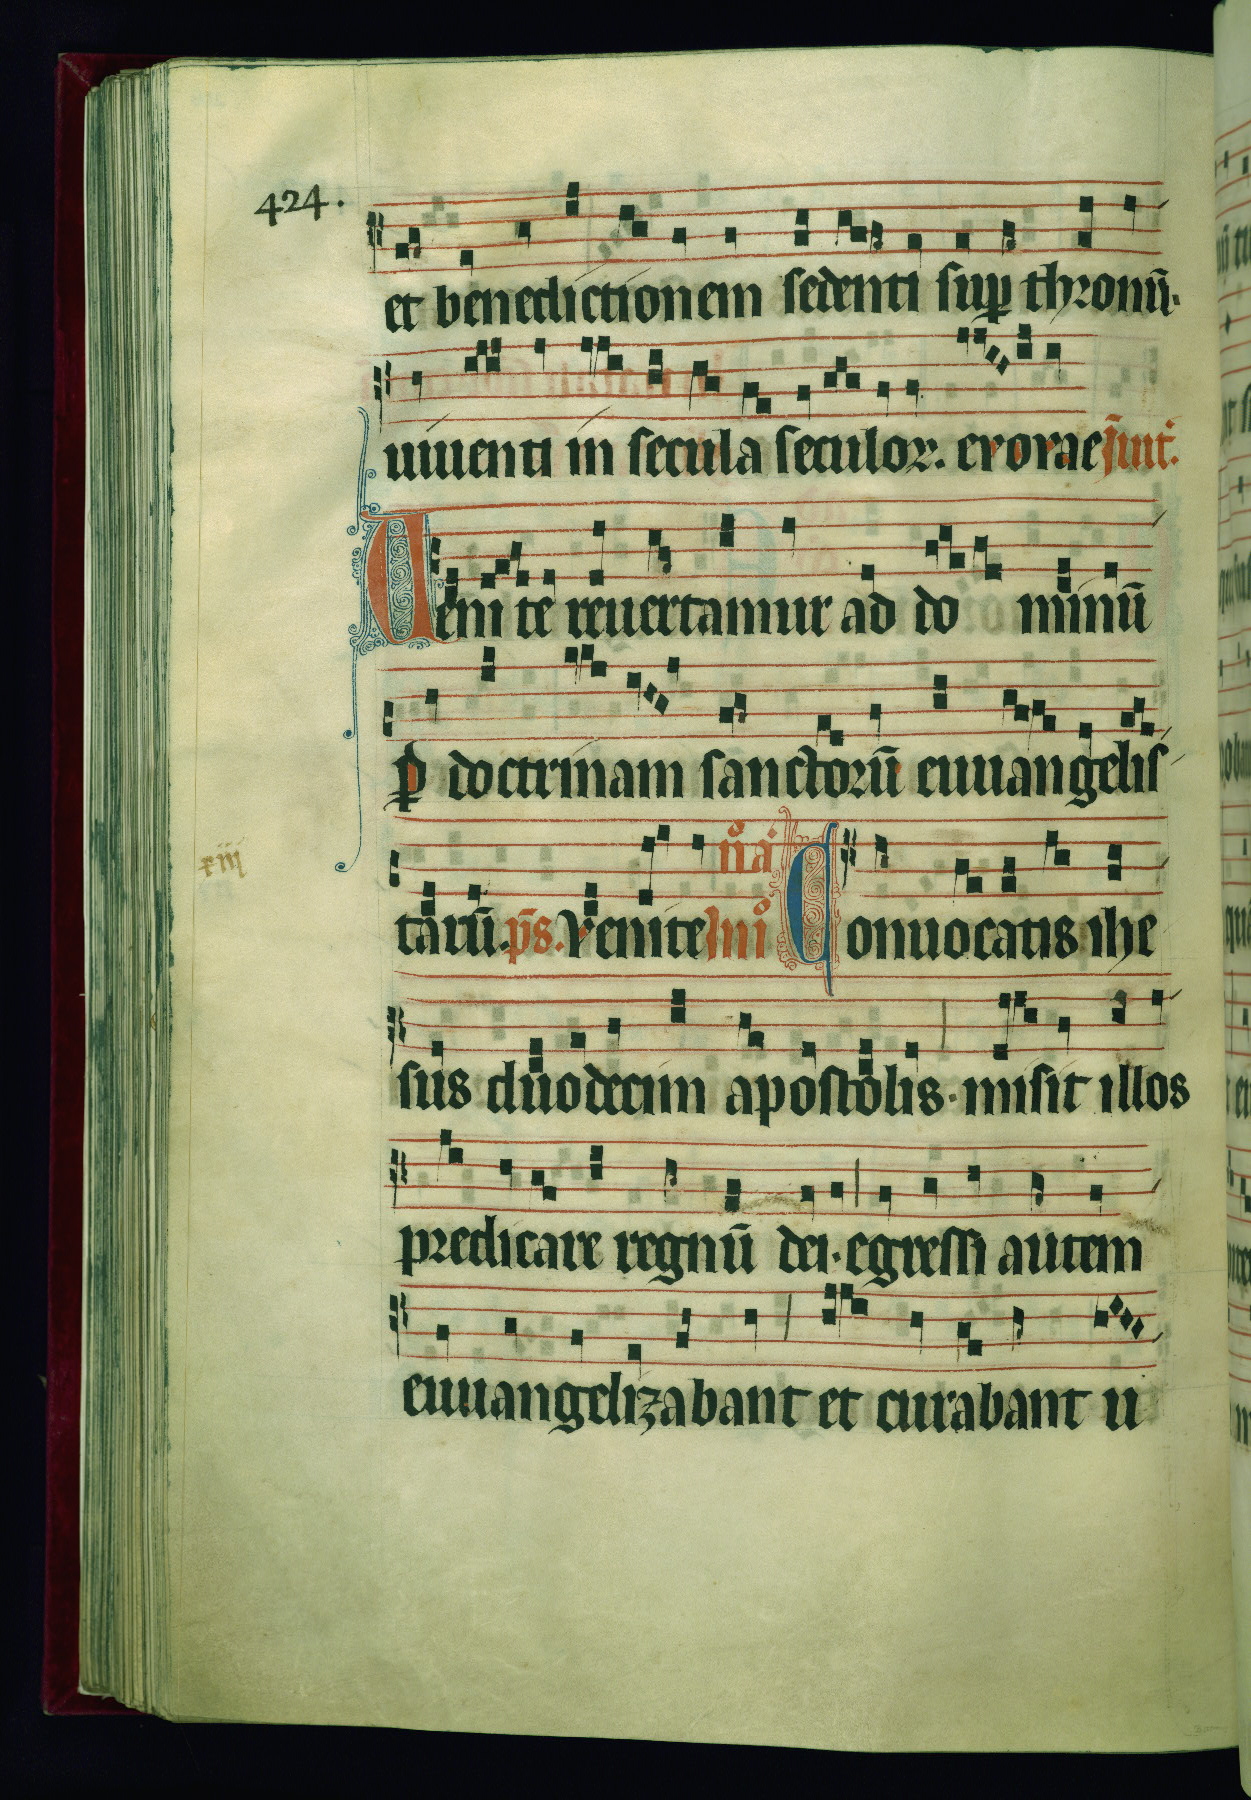 424.
et benedictionem sedenti sup thronū.
uiuenti in secula seculor. evovae Inuit.
Veni te reuertamur ad do minū
p doctrinam sanctorū euuangelis
xiij
tarū. ps. Venite In i no na Conuocatis ihe
sus duodecim apostolis. misit illos
predicare regnū dei. egressi autem
euuangelizabant et curabant u